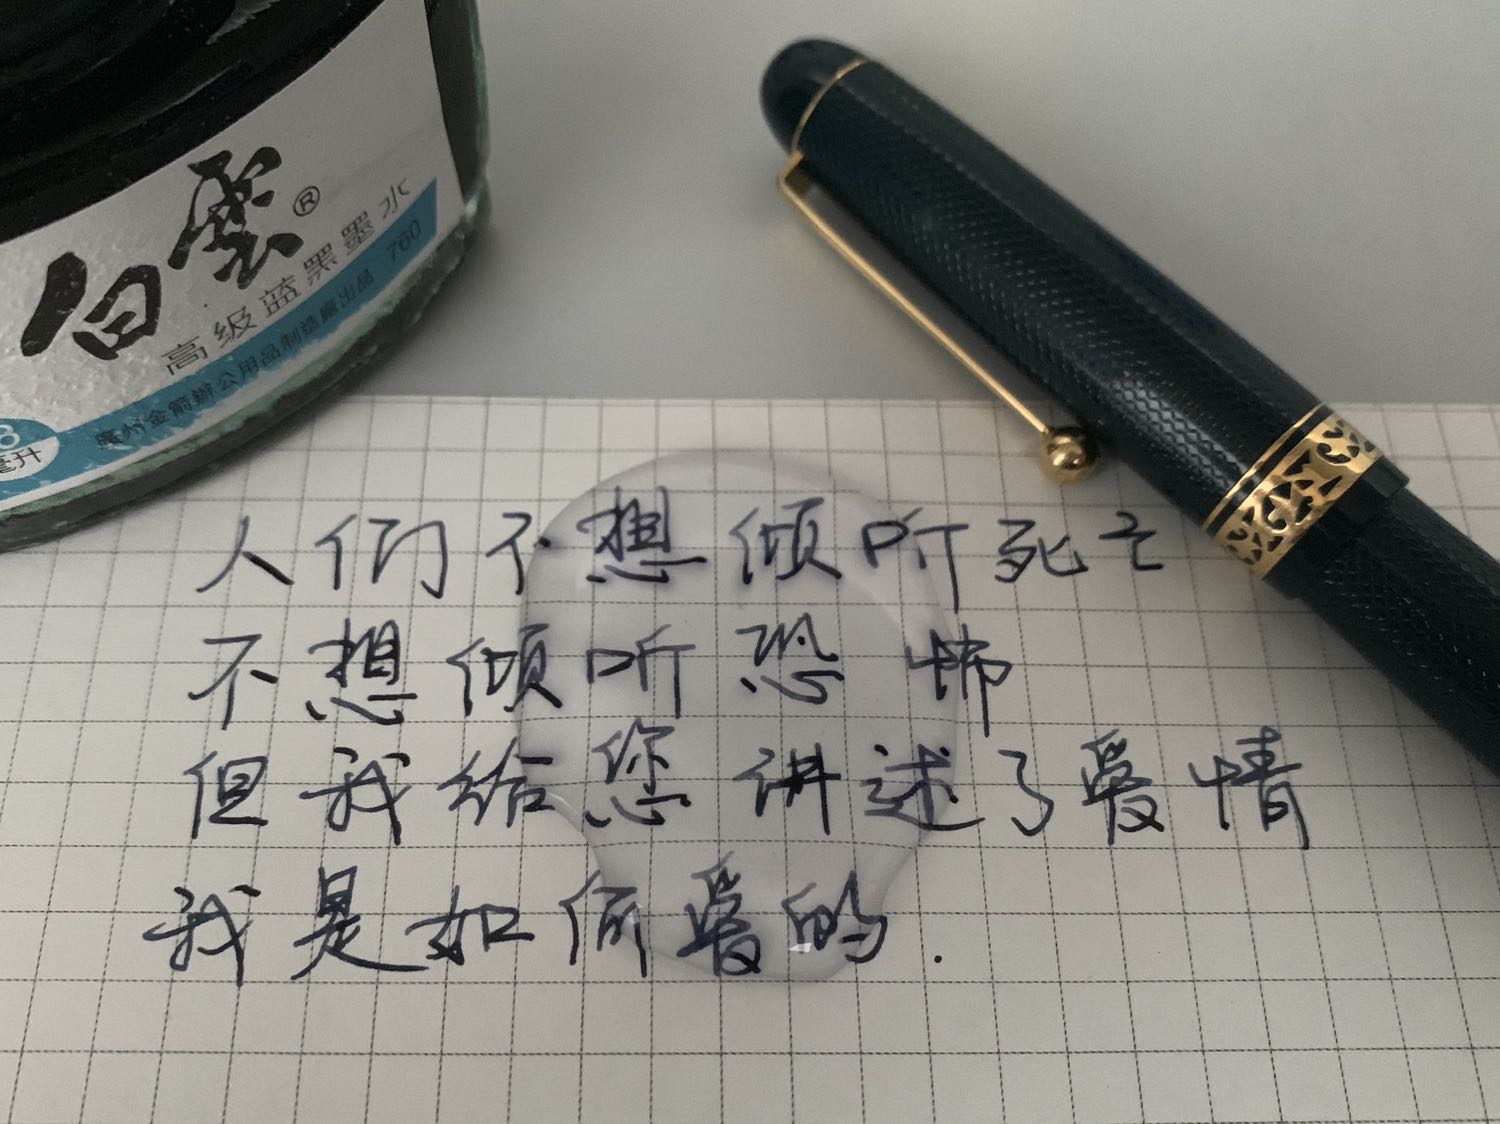 白雲®
高级蓝黑墨水
廣州金箭辦公用品制造廠出品 760
8
毫升
人们不想倾听死亡
不想倾听恐怖
但我给您讲述了爱情
我是如何爱的.